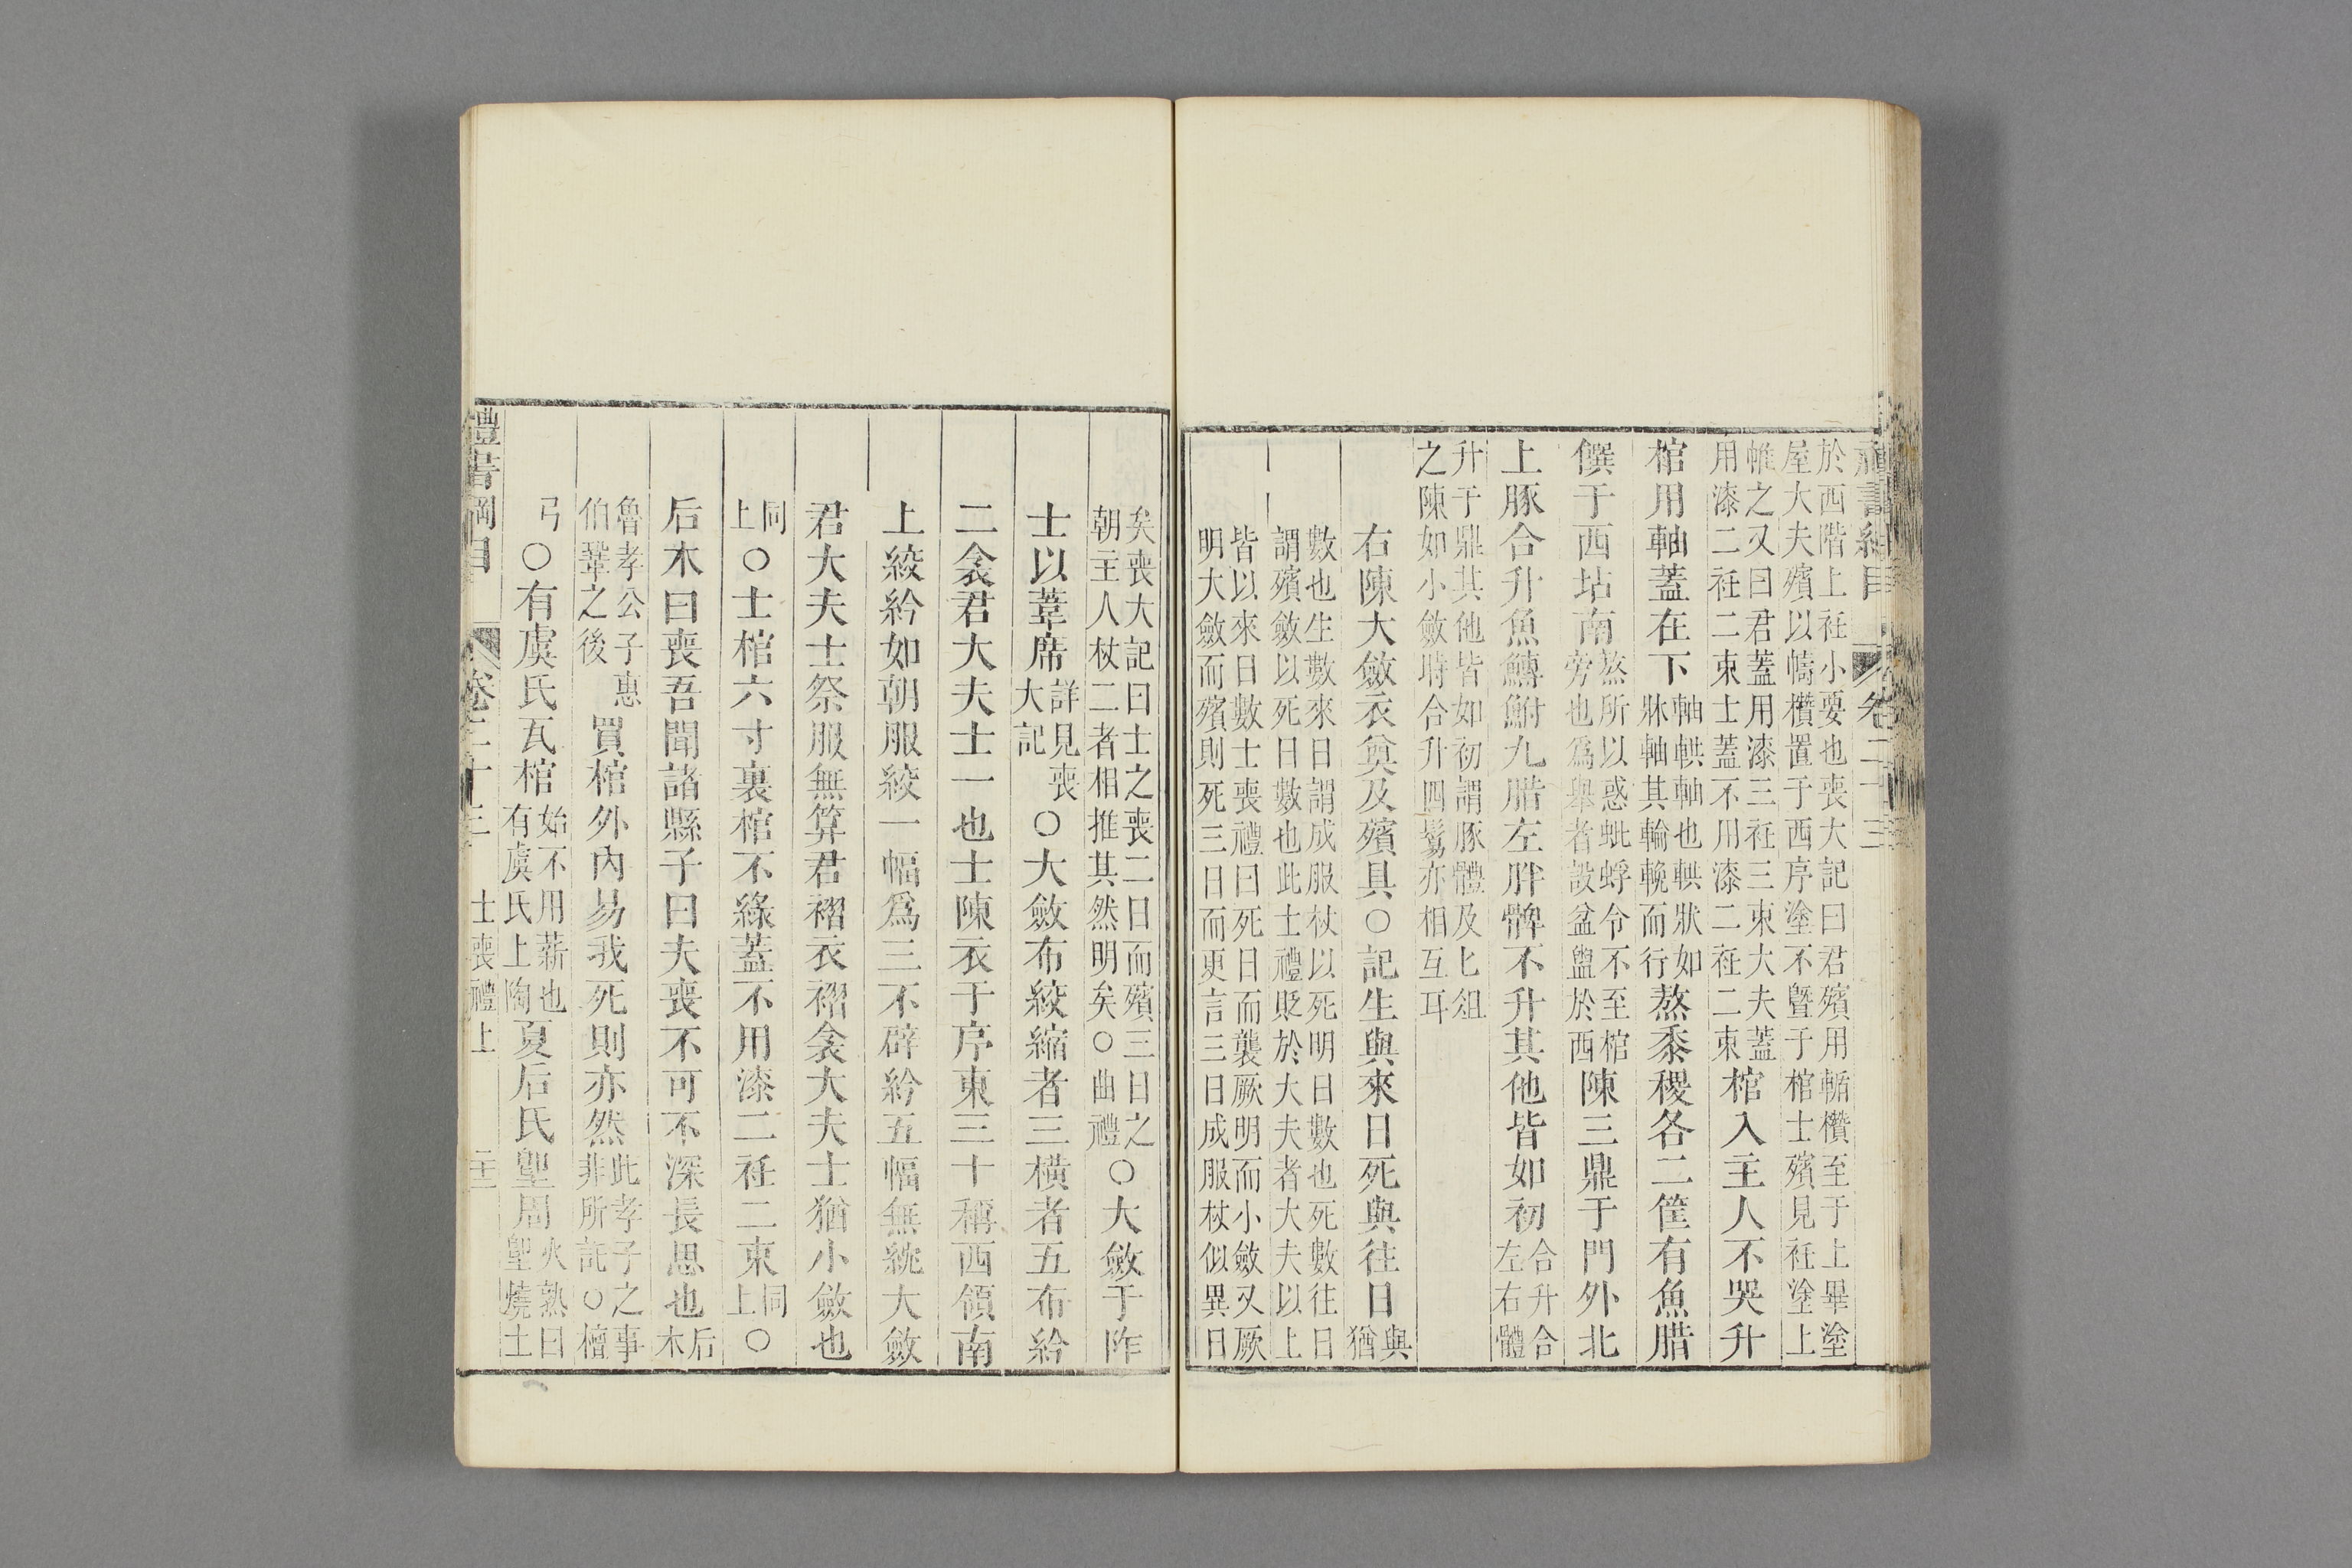 禮書綱目 卷二十三
於西階上衽小要也喪大記曰君殯用輴欑至于上畢塗
屋大夫殯以幬欑置于西序塗不曁于棺士殯見衽塗上
帷之又曰君蓋用漆三衽三束大夫蓋
用漆二衽二束士蓋不用漆二衽二束棺入主人不哭升
棺用軸蓋在下軸輁軸也輁狀如
牀軸其輪輓而行熬黍稷各二筐有魚腊
饌于西坫南熬所以惑蚍蜉令不至棺
旁也爲舉者設盆盥於西陳三鼎于門外北
上豚合升魚鱄鮒九腊左胖髀不升其他皆如初合升合
左右體
升于鼎其他皆如初謂豚體及匕俎
之陳如小斂時合升四鬄亦相互耳
右陳大斂衣奠及殯具○記生與來日死與往日與
猶
數也生數來日謂成服杖以死明日數也死數往日
謂殯斂以死日數也此士禮貶於大夫者大夫以上
皆以來日數士喪禮曰死日而襲厥明而小斂又厥
明大斂而殯則死三日而更言三日成服杖似異日
矣喪大記曰士之喪二日而殯三日之
朝主人杖二者相推其然明矣○曲禮○大斂于阼
士以葦席詳見喪
大記○大斂布絞縮者三橫者五布紟
二衾君大夫士一也士陳衣于序東三十稱西領南
上絞紟如朝服絞一幅爲三不辟紟五幅無紞大斂
君大夫士祭服無算君褶衣褶衾大夫士猶小斂也
同
上○士棺六寸裏棺不綠蓋不用漆二衽二束同
上○
后木曰喪吾聞諸縣子曰夫喪不可不深長思也后
木
魯孝公子惠
伯鞏之後買棺外內易我死則亦然此孝子之事
非所託○檀
弓○有虞氏瓦棺始不用薪也
有虞氏上陶夏后氏堲周火熟曰
堲燒土
禮書綱目 卷二十三 士喪禮上